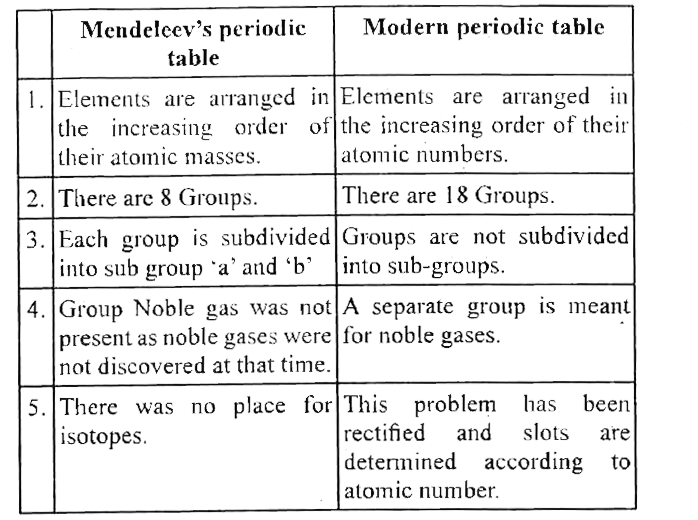 Mendeleev's periodic table
Modern periodic table
1. Elements are arranged in
the increasing order of
their atomic masses.
Elements are arranged in
the increasing order of their
atomic numbers.
2. There are 8 Groups.
There are 18 Groups.
3. Each group is subdivided
into sub group 'a' and 'b'
Groups are not subdivided
into sub-groups.
4. Group Noble gas was not
present as noble gases were
not discovered at that time.
A separate group is meant
for noble gases.
5. There was no place for
isotopes.
This problem has been
rectified and slots are
determined according to
atomic number.